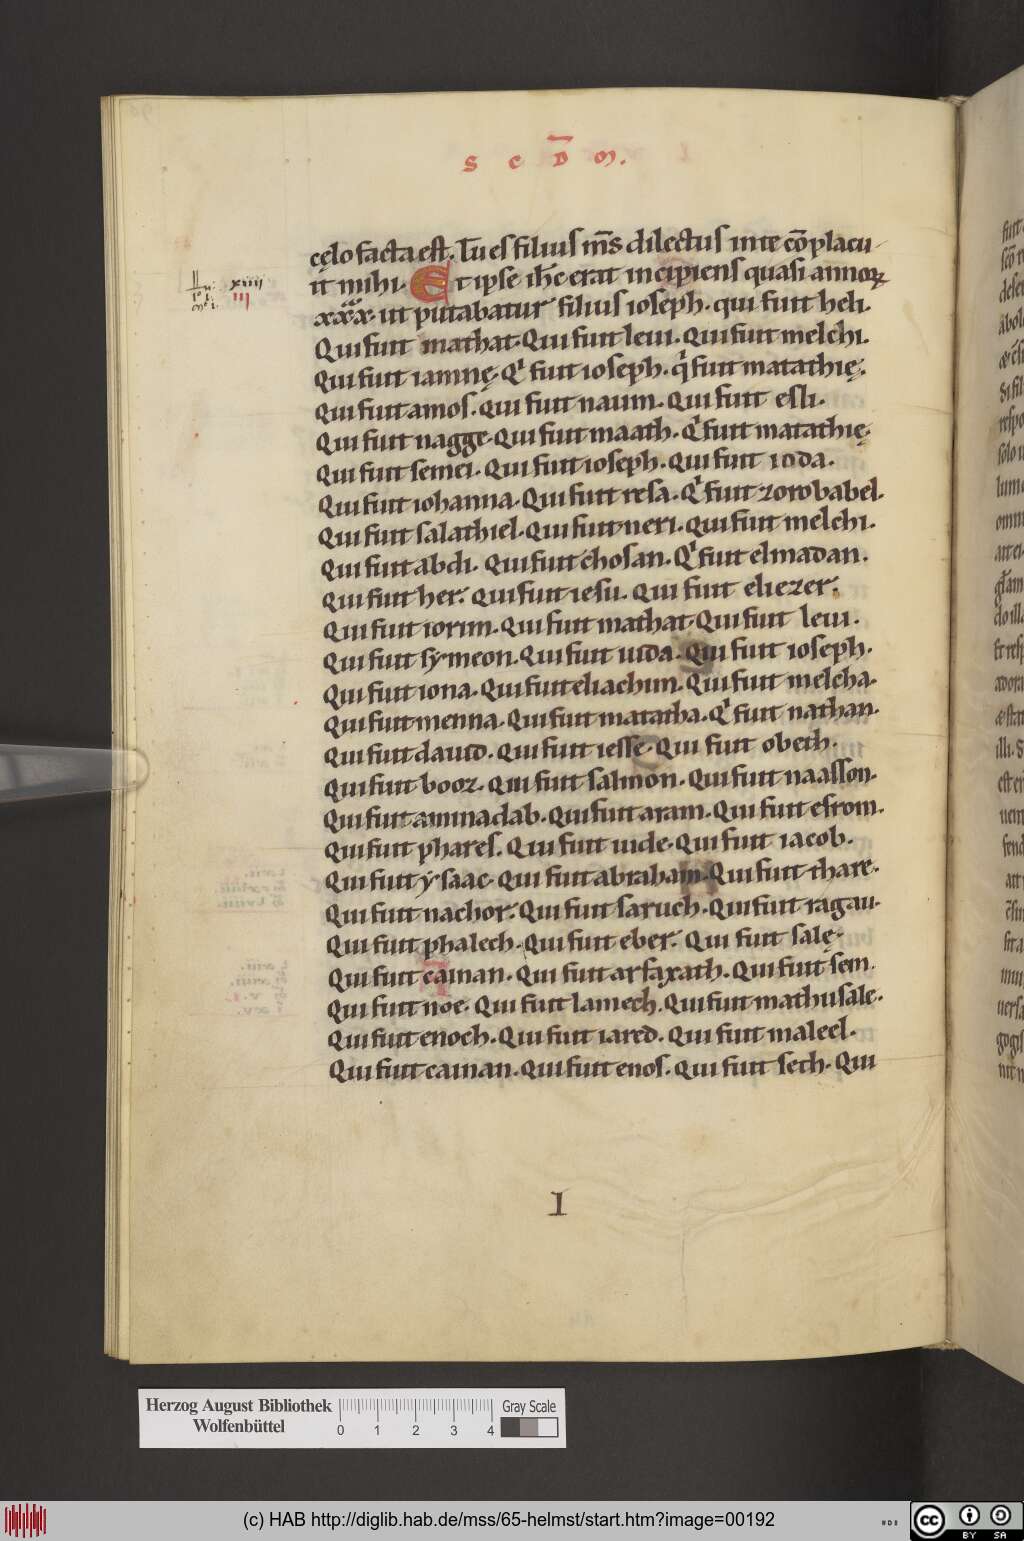 S C D̅ M.
cęlo facta est. Tu es filius m̅s dilectus in te co̅placu
it mihi. Et ipse ih̅c erat incipiens quasi annoꝝ
xxx. ut putabatur filius ioseph. qui fuit heli.
Qui fuit mathat. Qui fuit leui. Qui fuit melchi.
Qui fuit iamnę. Qͥ fuit ioseph. qͥ fuit matathię.
Qui fuit amos. Qui fuit naum. Qui fuit esli.
Qui fuit nagge. Qui fuit maath. Qͥ fuit matathię.
Qui fuit semei. Qui fuit ioseph. Qui fuit ioda.
Qui fuit iohanna. Qui fuit resa. Qͥ fuit zorobabel.
Qui fuit salathiel. Qui fuit neri. Qui fuit melchi.
Qui fuit abdi. Qui fuit chosan. Qͥ fuit elmadan.
Qui fuit her. Qui fuit iesu. Qui fuit eliezer.
Qui fuit iorim. Qui fuit mathat. Qui fuit leui.
Qui fuit symeon. Qui fuit iuda. Qui fuit ioseph.
Qui fuit iona. Qui fuit eliachim. Qui fuit melcha.
Qui fuit menna. Qui fuit matatha. Qͥ fuit nathan.
Qui fuit dauid. Qui fuit iesse. Qui fuit obeth.
Qui fuit booz. Qui fuit salmon. Qui fuit naasson.
Qui fuit aminadab. Qui fuit aram. Qui fuit esrom.
Qui fuit phares. Qui fuit iude. Qui fuit iacob.
Qui fuit ysaac. Qui fuit abraham. Qui fuit thare.
Qui fuit nachor. Qui fuit saruch. Qui fuit ragau.
Qui fuit phalech. Qui fuit eber. Qui fuit salę.
Qui fuit cainan. Qui fuit arfaxath. Qui fuit sem.
Qui fuit noe. Qui fuit lamech. Qui fuit mathusale.
Qui fuit enoch. Qui fuit iared. Qui fuit maleel.
Qui fuit cainan. Qui fuit enos. Qui fuit seth. Qui
xiiii
III
I
Herzog August Bibliothek
Wolfenbüttel
0 1 2 3 4
Gray Scale
(c) HAB http://diglib.hab.de/mss/65-helmst/start.htm?image=00192
cc BY SA